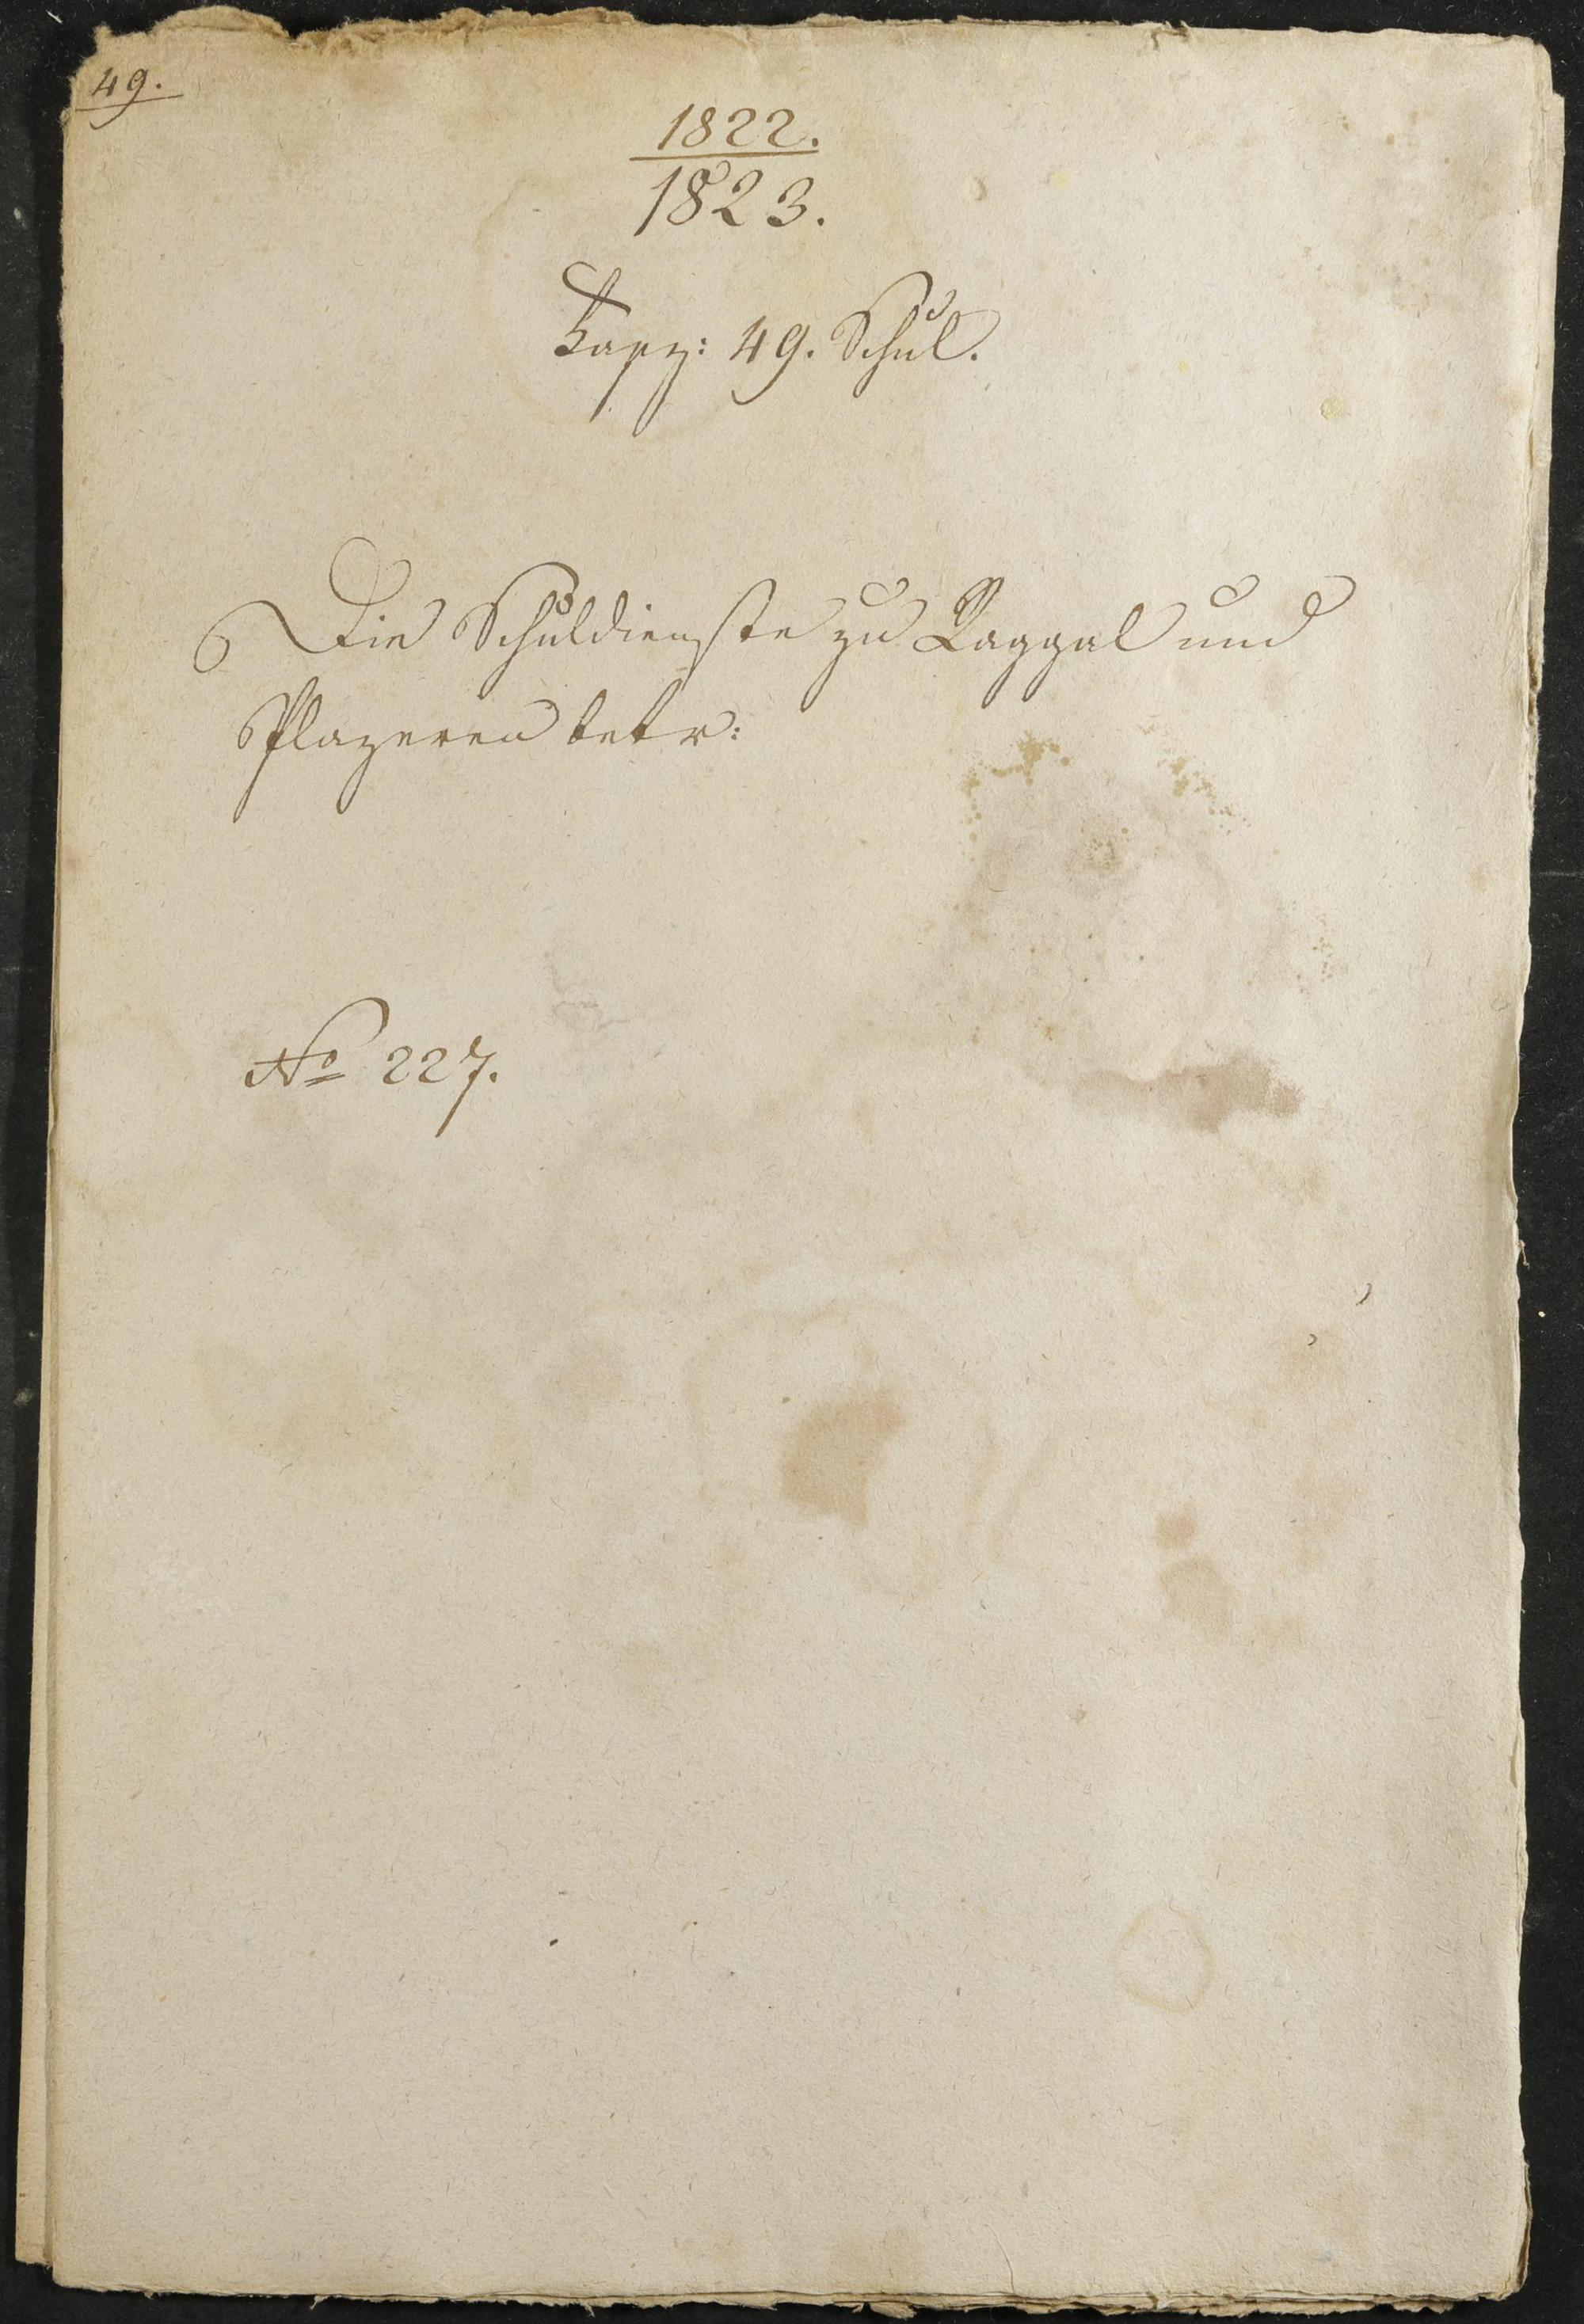 49.
1822.
1823.
Fasz: 49. Schul.
Die Schuldienste zu Raggal und
Plazeren betr:
No 227.